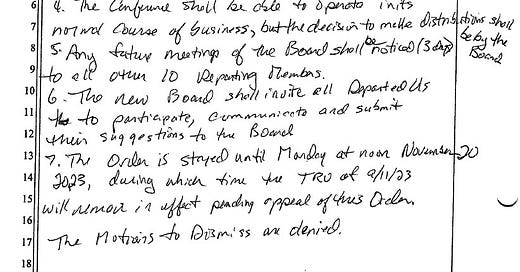 6 4. The Conference shall be able to operate in its
7 normal course of business, but the decision to make distributions shall
be by the
Board
8 5. Any future meetings of the Board shall be noticed (3 days)
9 to all other 10 Departing Members.
10 6. The new Board shall invite all Departed Us
11 to participate, communicate and submit
12 their suggestions to the Board
13 7. The Order is stayed until Monday at noon November 20
14 2023, during which time the TRO of 9/11/23
15 will remain in effect pending appeal of this Order.
16
17 The Motions to Dismiss are denied.
18